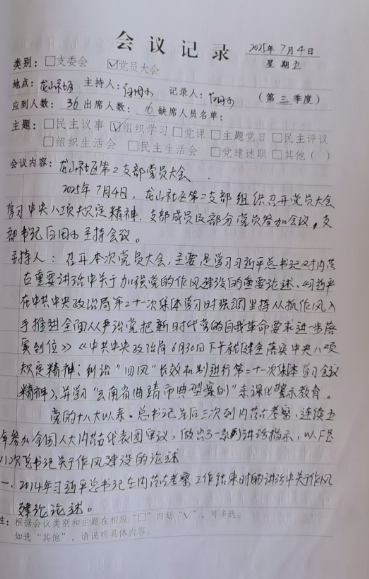 会议记录
2025年7月4日
星期五
类别：□支委会 ☑党员大会
地点：龙山社区 主持人： 记录人： （第三季度）
应到人数：36 出席人数： 6 缺席人员名单：
主题：□民主议事 ☑组织学习 □党课 □主题党日 □民主评议
□组织生活会 □民主生活会 □党建述职 □其他（ ）
会议内容：龙山社区第二支部党员大会
2025年7月4日，龙山社区第二支部组织召开党员大会
学习中央八项规定精神，支部成员及部分党员参加会议，支
部书记 主持会议。
主持人：召开本次党员大会，主要是学习习近平总书记对内蒙
古重要讲话中关于加强党的作风建设的重要论述、习近平
在中共中央政治局第二十一次集体学习时强调坚持从抓作风入
手推进全面从严治党把新时代党的自我革命要求进一步落
实到位》《中共中央政治局6月30日下午就健全落实中央八项
规定精神、纠治“四风”长效机制进行第二十一次集体学习会议
精神》，并到“云南省曲靖市典型案例”来深化警示教育。
党的十八大以来，总书记先后三次到内蒙古考察，连续五
年参加全国人大内蒙古代表团审议，做出了一系列讲话指示，以下是
八次总书记关于作风建设的论述
一、2014年习近平总书记在内蒙古考察工作结束时的讲话中关于作风
建设论述。
注：根据会议类别和主题在相应“□”内划“√”，可多选。
如选“其他”，请说明具体内容。